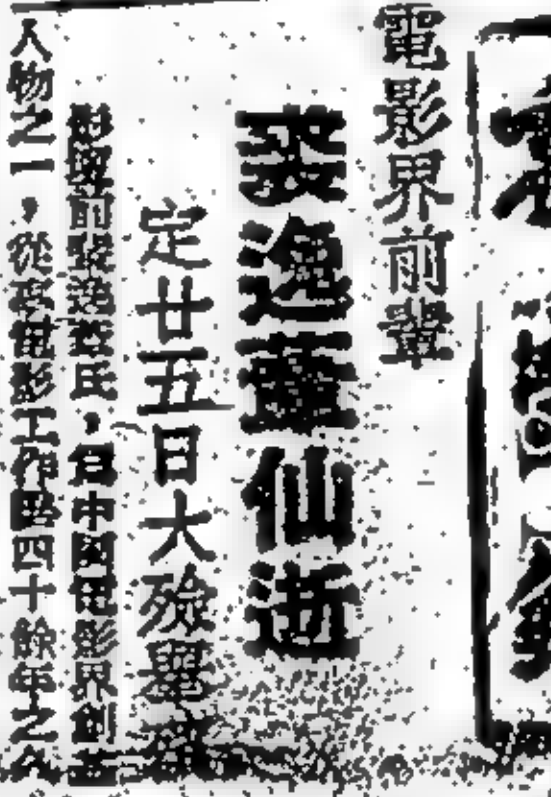 電影界前輩
裘逸葦仙逝
定廿五日大殮舉
影界前輩裘逸葦氏，為中國電影界創
人物之一，從事電影工作四十餘年之久